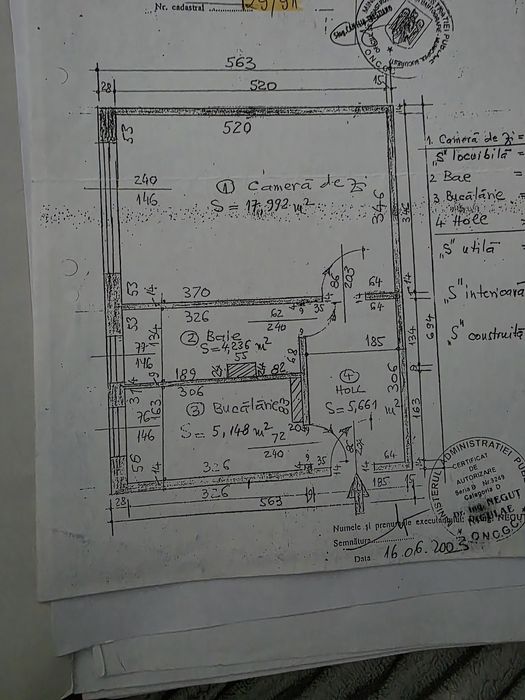 Nr. cadastral
563
28
520
15
53
520
240
146
① Cameră de zi
S = 17,992 m²
346
346
1. Cameră de zi =
"S" locuibilă =
2 Baie =
3 Bucătărie =
4 Holl
"S" utilă
"S" interioară
"S" construită
694
53
14
370
86
203
64
64
14
53
326
62
240
9
35
14
134
② Baie
S = 4,236 m²
55
68
185
134
77
146
189
82
9
31
306
④
Holl
S = 5,661 m²
306
163
③ Bucătărie
S = 5,148 m²
83
20
76
146
163
72
240
56
14
326
9
35
14
86
64
28
326
563
185
15
MINISTERUL ADMINISTRATIEI PUBLICE
CERTIFICAT
DE
AUTORIZARE
Seria B Nr. 3249
Categoria D
Ing. NEGUT
NICULAE
O.N.C.G.C
Numele și prenumele executantului
Semnătura
Data 16.06.2003